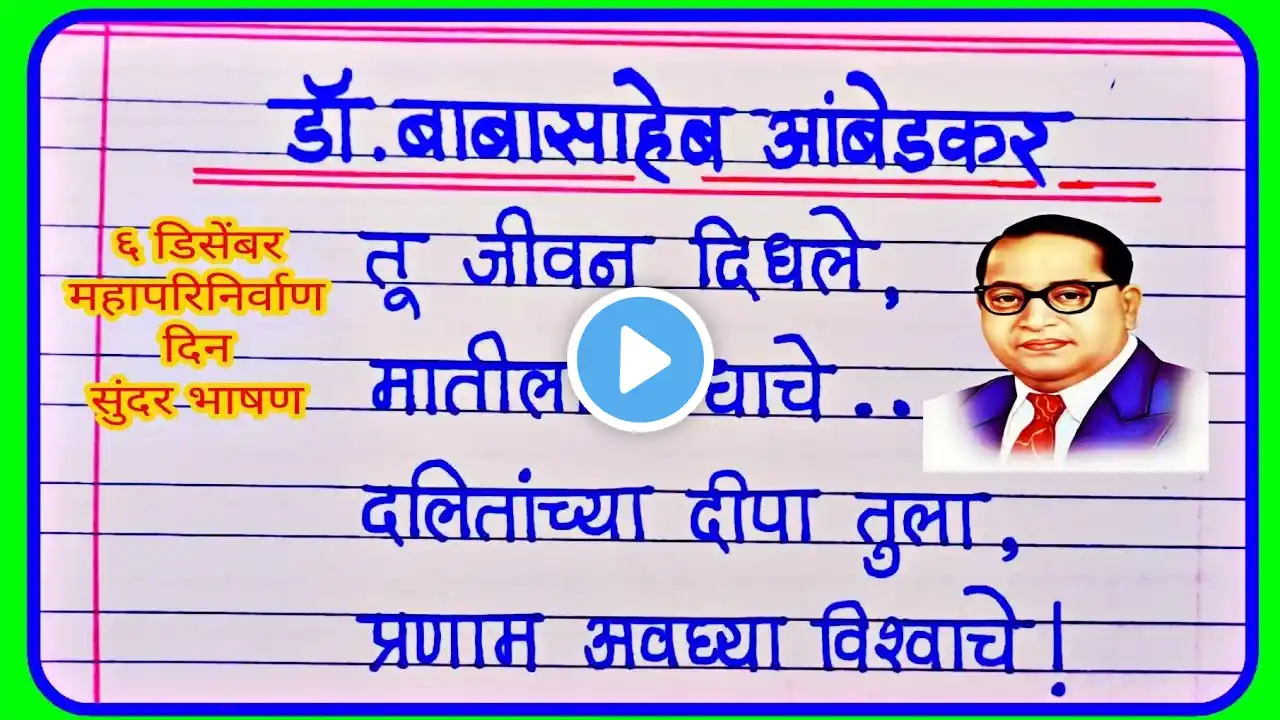 डॉ.बाबासाहेब आंबेडकर
६ डिसेंबर
महापरिनिर्वाण
दिन
सुंदर भाषण
तू जीवन दिधले,
मातीला ..
दलितांच्या दीपा तुला,
प्रणाम अवघ्या विश्वाचे!